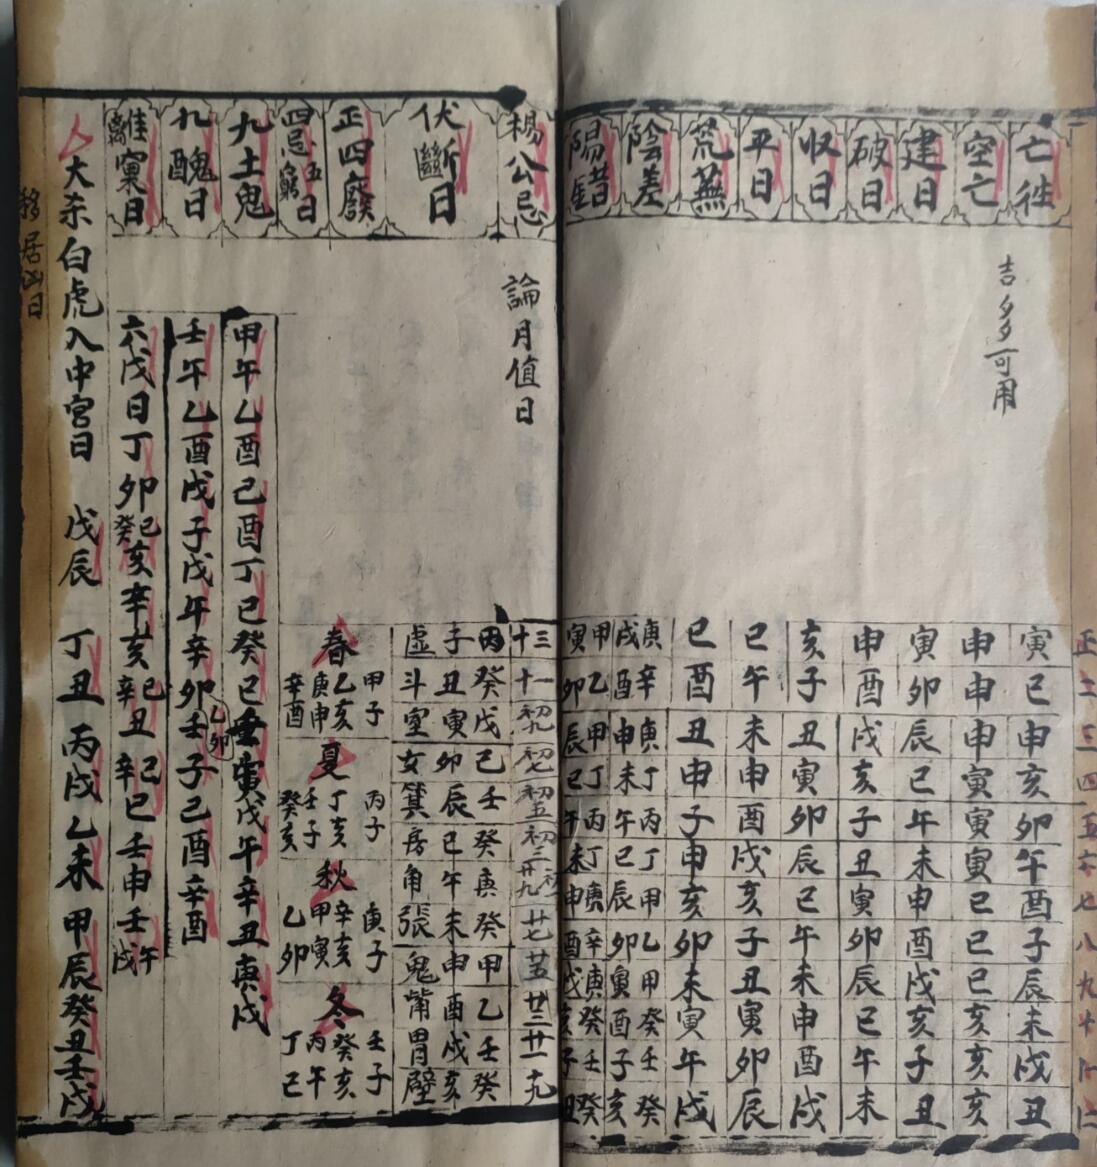 正二三四五六七八九十
亡徃
寅巳申亥卯午酉子辰未戌丑
空亡
吉多可用
申申申寅寅寅巳巳巳亥亥亥
建日
寅卯辰巳午未申酉戌亥子丑
破日
申酉戌亥子丑寅卯辰巳午未
収日
亥子丑寅卯辰巳午未申酉戌
平日
巳午未申酉戌亥子丑寅卯辰
荒蕪
巳酉丑申子申亥卯未寅午戌
陰差
庚戌
辛酉
庚申
丁未
丙午
丁巳
甲辰
乙卯
甲寅
癸酉
壬子
癸亥
陽錯
甲寅
乙卯
甲辰
丁巳
丙午
丁未
庚申
辛酉
庚戌
癸亥
壬子
癸丑
楊公忌
論月值日
十三
十一
初九
初七
初五
初三
初一廿九
廿七
廿五
廿三
廿一
十九
伏斷日
子丑寅卯辰巳午未申酉戌亥
虚斗室女箕房角張鬼觜胃壁
癸戊己壬癸庚癸甲乙壬癸
正四廢
春
甲子
乙亥
庚申
辛酉
夏
丙子
丁亥
壬子
癸亥
秋
庚子
辛亥
甲寅
乙卯
冬
壬子
癸亥
丙午
丁巳
四忌五窮日
九土鬼
甲午乙酉己酉丁巳癸巳
寅戊午辛丑庚戌
九醜日
壬午乙酉戊子戊午辛卯壬子己酉辛酉
乙卯
離窠日
六戊日丁卯癸巳亥辛亥辛巳丑辛巳巳壬申壬戌午
大杀白虎入中宮日 戊辰 丁丑 丙戌乙未 甲辰癸丑壬戌
移居凶日